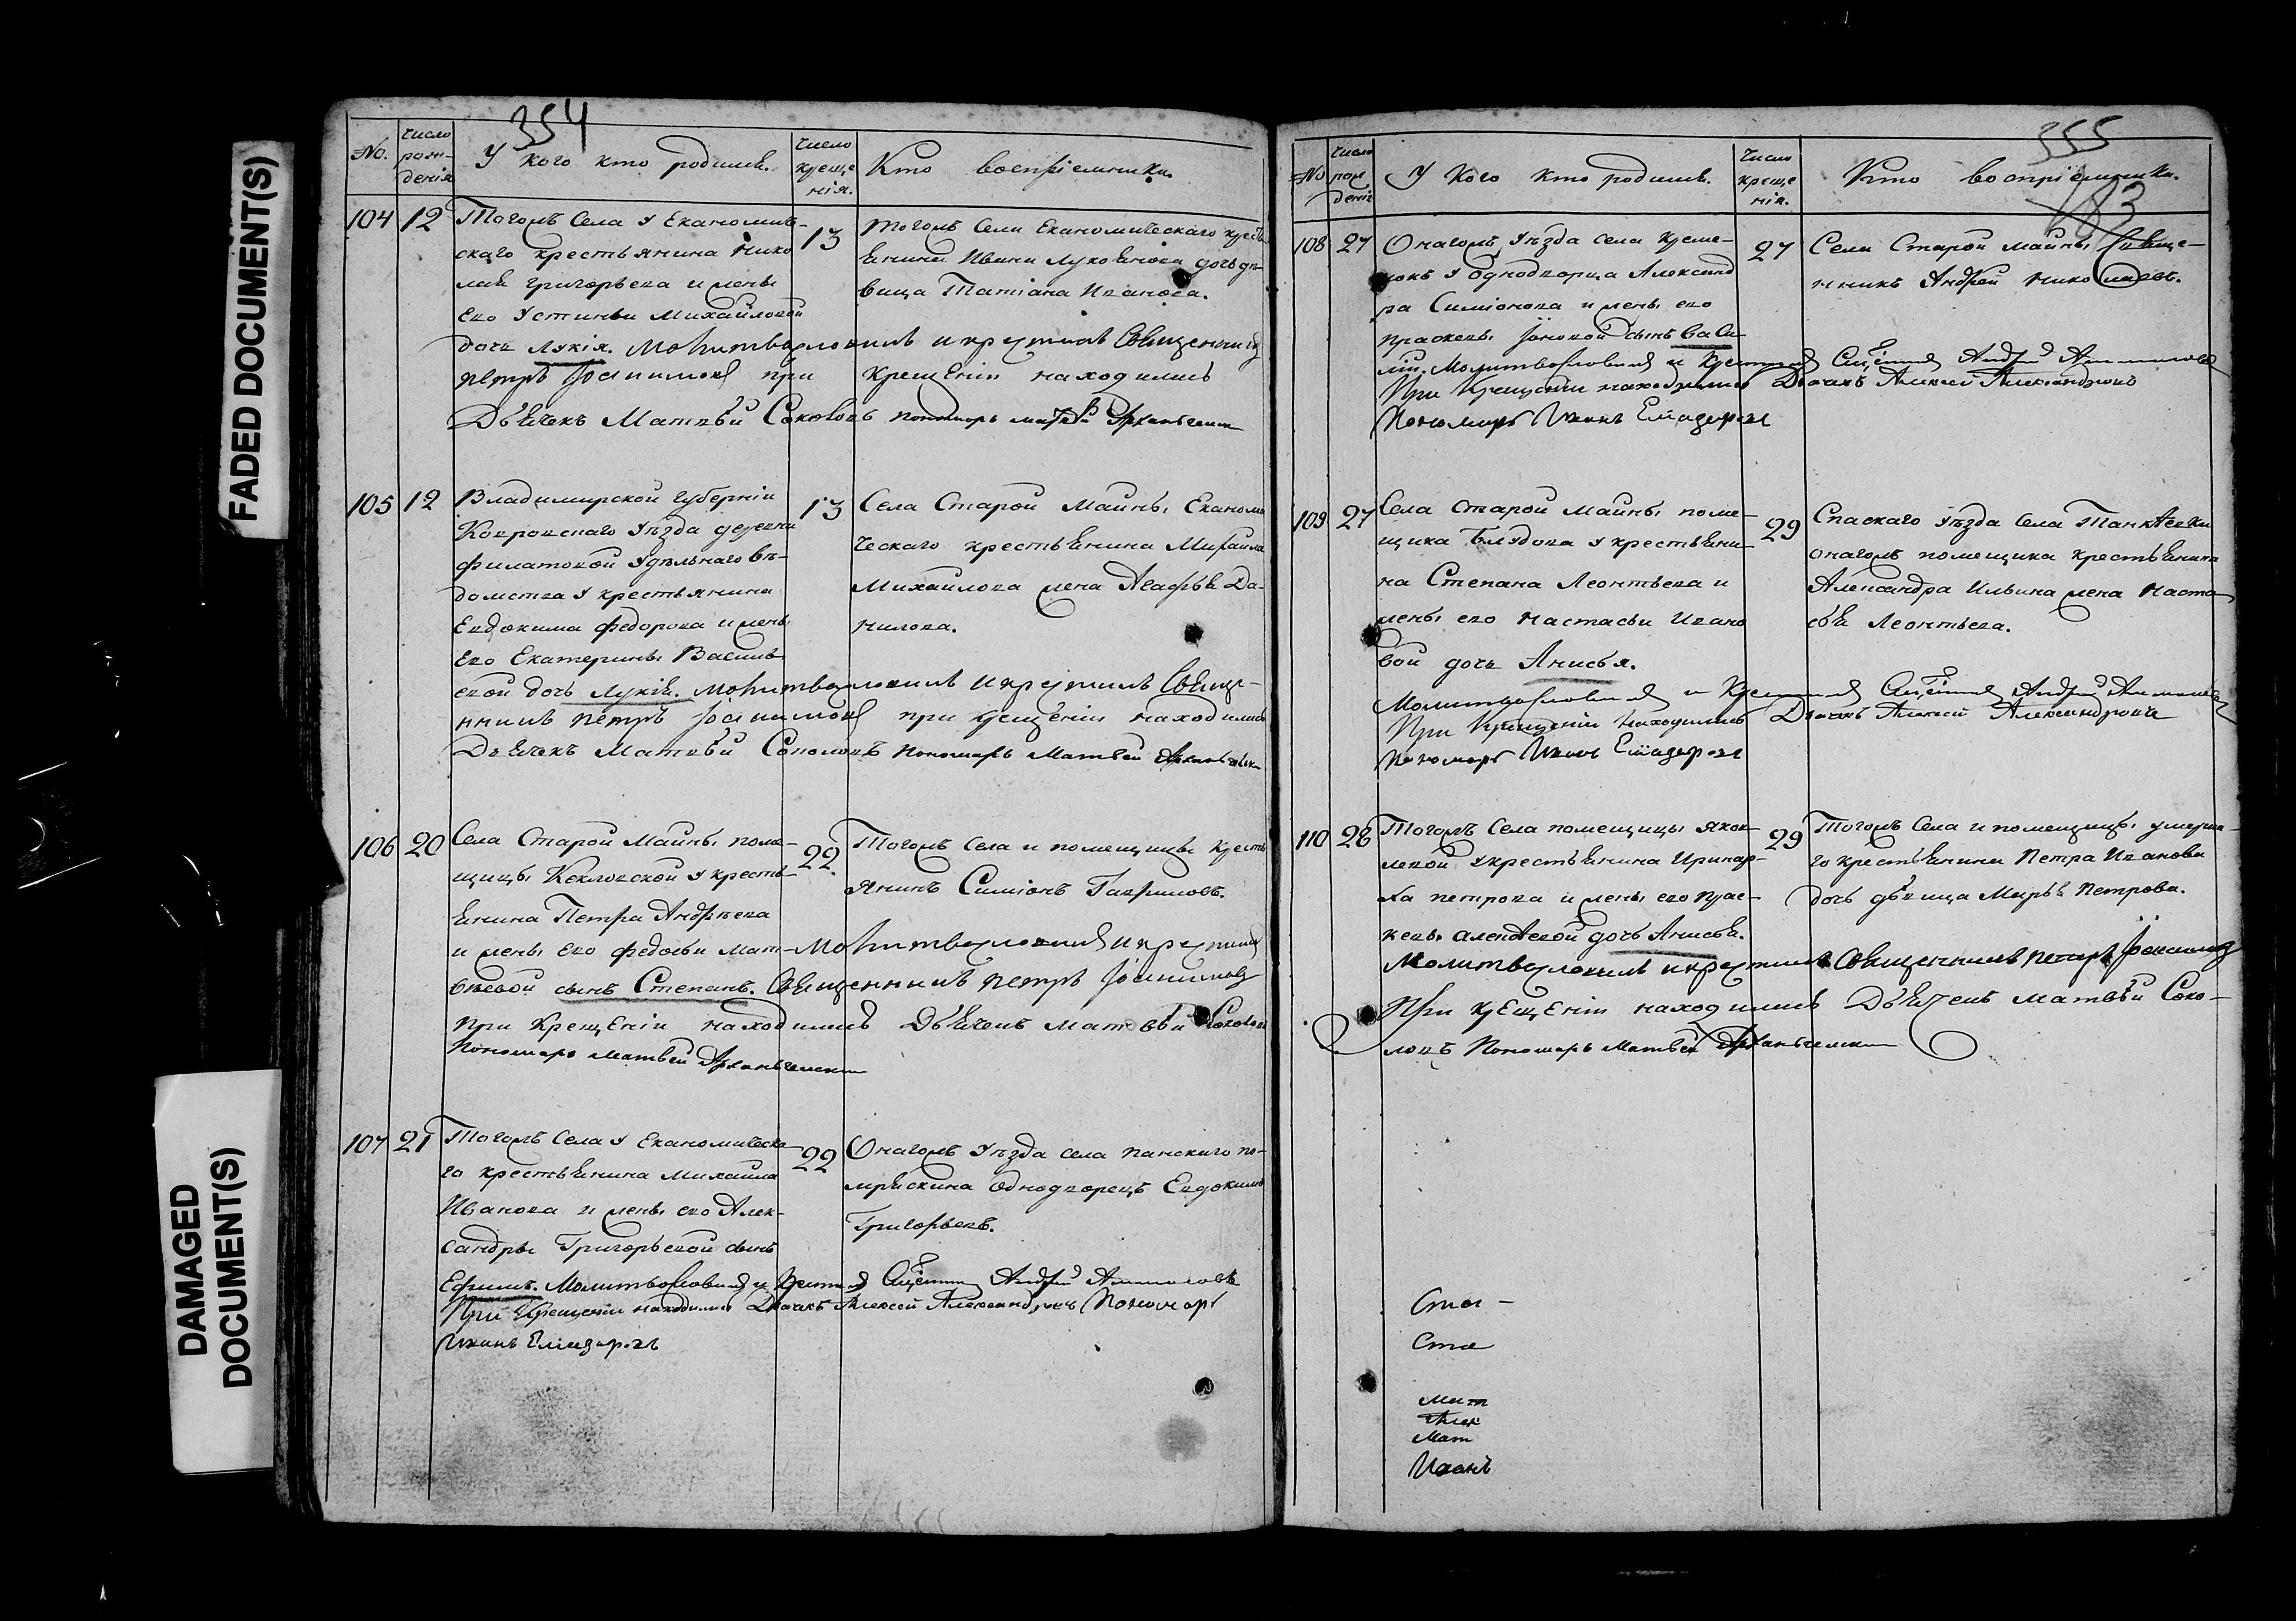 FADED DOCUMENT(S)
DAMAGED DOCUMENT(S)
354
No.
Число рож-
денія
У кого кто родился.
Число
креще
нія.
Кто воспріемники.
104
12
Тогожъ Села у Економиче-
скаго крестьянина Нико
лая Григорьева и жены
Его Устиньи Михайловой
дочь Лукія. Молитвословилъ и крестилъ Священникъ
Петръ при крещеніи находились
Дьячекъ Матвѣй Соколовъ пономарь Матвѣй Архангельск
13
Тогожъ Села Економическаго кресть
янина Ивана Лукоянова дочь дѣ-
вица Татіана Иванова.
105
12
Владимирской Губерніи
Ковровскаго Уѣзда деревни
Филатовой Удѣльнаго вѣ-
домства у крестьянина
Евдокима Федорова и жены
Его Екатерины Василь
евой дочь Лукія. Молитвословилъ и крестилъ Свяще-
нникъ Петръ при крещеніи находились
Дьячекъ Матвѣй Соколовъ пономарь Матвѣй Архангельск
13
Села Старой Майны Економи
ческаго крестьянина Михаила
Михайлова жена Агафья Да-
нилова.
106
20
Села Старой Майны поме-
щицы у кресть-
янина Петра Андрѣева
и жены Его Федосьи Мат-
вѣевой сынъ Степанъ. Молитвословилъ и крестилъ
Священникъ Петръ
при крещеніи находились Дьячекъ Матвѣй Соколовъ
Пономарь Матвѣй Архангельск
22
Тогожъ Села и помещицы кресть
янинъ Симіонъ Гавриловъ.
107
21
Тогожъ Села у Економическа
го крестьянина Михаила
Иванова и жены его Алек-
сандры Григорьевой сынъ
Ефимъ. Молитвословилъ и крестилъ Священникъ Андрей
При крещеніи находились Дьячекъ Алексей Александровъ Пономарь
Иванъ
22
Онагожъ Уѣзда села Панскаго
однодворецъ Евдокимъ
Григорьевъ.
355
183
No
Число
рож
деніе
У кого кто родился.
Число
креще
нія.
Кто воспріемники.
108
27
Онагожъ Уѣзда села Креме-
нокъ у Однодворца Александ
ра Симіонова и жены его
Прасковьи сынъ Васи-
лій. Молитвословилъ и крестилъ Священникъ Андрей
При крещеніи находились Дьячекъ Алексей Александровъ
Пономарь Иванъ
27
Села Старой Майны Свяще-
нникъ Андрей Николаевъ.
109
27
Села Старой Майны поме-
щика Блудова у крестьяни-
на Степана Леонтьева и
жены его Настасьи Ивано
вой дочь Анисья.
Молитвословилъ и крестилъ Священникъ Андрей
При крещеніи находились Дьячекъ Алексей Александровъ
Пономарь Иванъ
29
Спаскаго Уѣзда Села Танкѣевки
онагожъ помещика крестьянина
Александра Ильина жена Наста
сья Леонтьева.
110
28
Тогожъ Села помещицы Яков-
левой у крестьянина Иринар-
ха Петрова и жены его Прас-
ковьи Алексѣевой дочь Анисья.
Молитвословилъ и крестилъ Священникъ Петръ
При крещеніи находились Дьячекъ Матвѣй Соко-
ловъ Пономарь Матвѣй Архангельск
29
Тогожъ Села и помещицы умерша-
го крестьянина Петра Иванова
дочь дѣвица Марья Петрова.
Алек
Мат
Иванъ